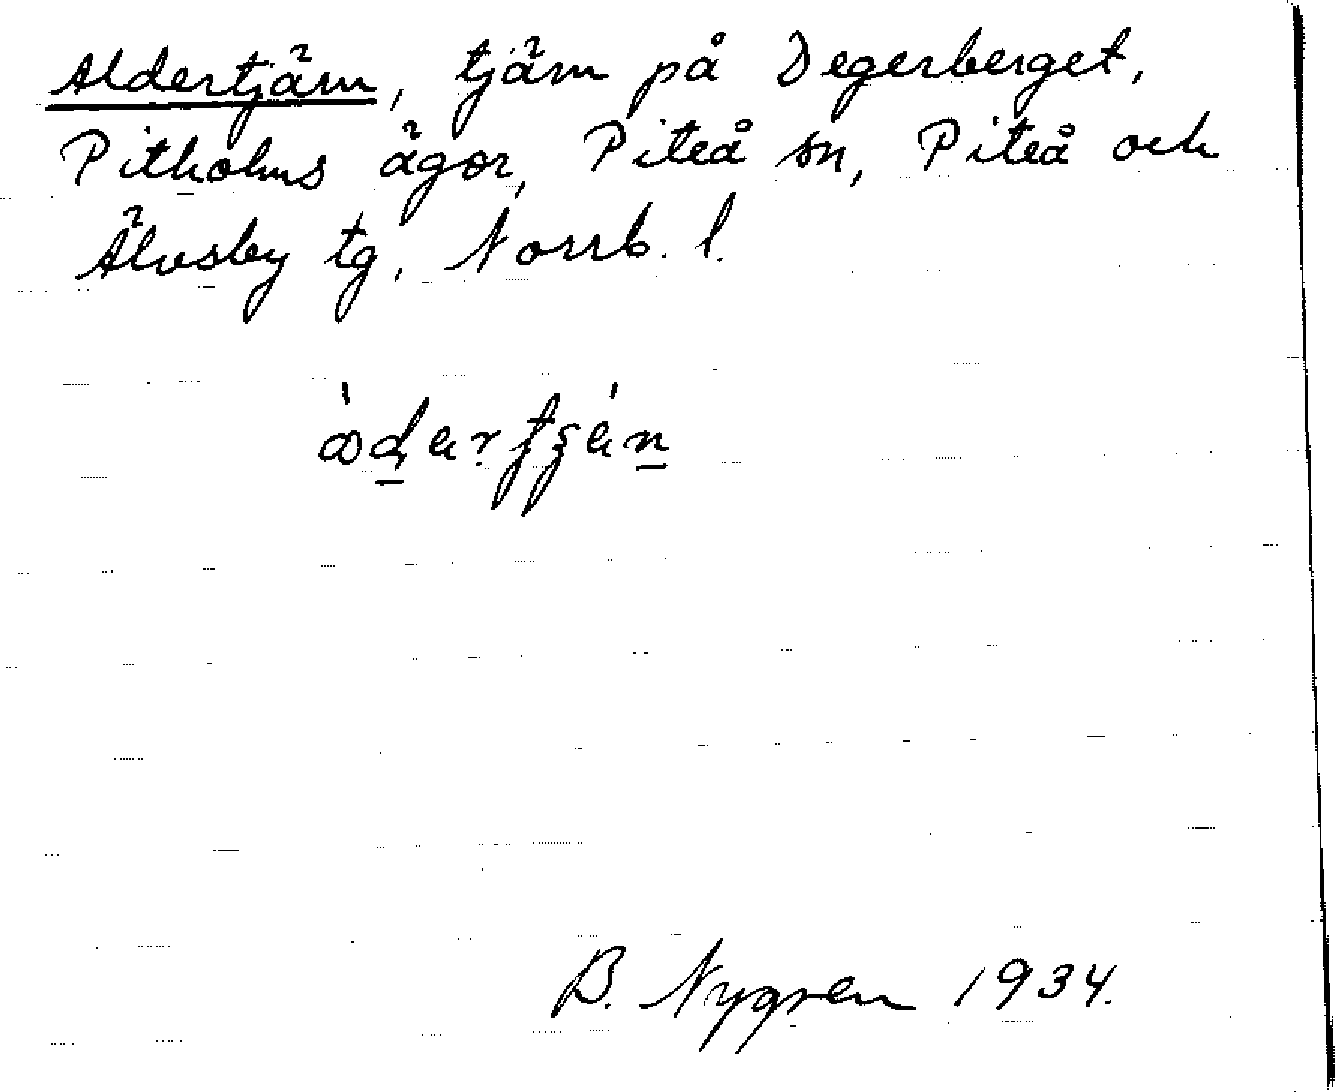 Aldertjärn, tjärn på Degerberget,
Pitholms ägor, Piteå sn, Piteå och
Älvsby tg, Norrb. l.
B. Nygren 1934.